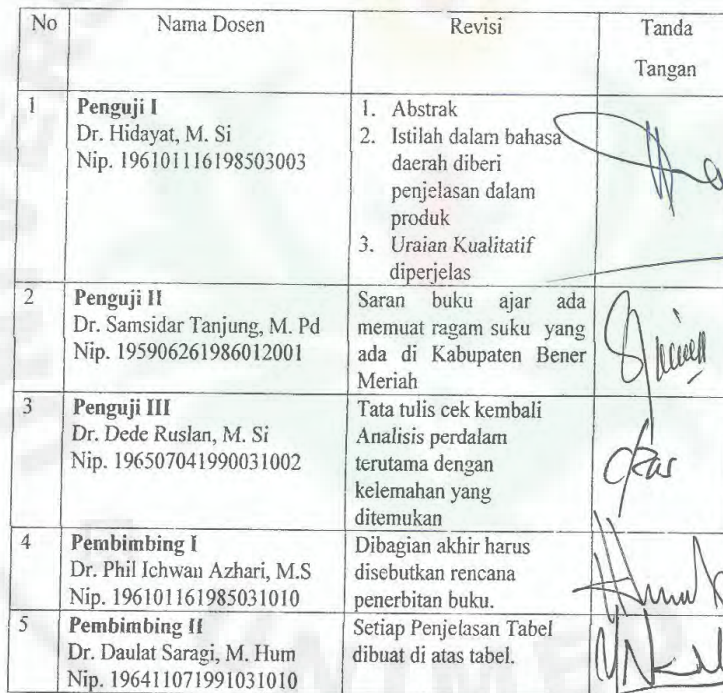 No Nama Dosen Revisi Tanda
Tangan
1 Penguji I
Dr. Hidayat, M. Si
Nip. 196101116198503003
1. Abstrak
2. Istilah dalam bahasa
daerah diberi
penjelasan dalam
produk
3. Uraian Kualitatif
diperjelas
2 Penguji II
Dr. Samsidar Tanjung, M. Pd
Nip. 195906261986012001
Saran buku ajar ada
memuat ragam suku yang
ada di Kabupaten Bener
Meriah
3 Penguji III
Dr. Dede Ruslan, M. Si
Nip. 196507041990031002
Tata tulis cek kembali
Analisis perdalam
terutama dengan
kelemahan yang
ditemukan
4 Pembimbing I
Dr. Phil Ichwan Azhari, M.S
Nip. 196101161985031010
Dibagian akhir harus
disebutkan rencana
penerbitan buku.
5 Pembimbing II
Dr. Daulat Saragi, M. Hum
Nip. 196411071991031010
Setiap Penjelasan Tabel
dibuat di atas tabel.